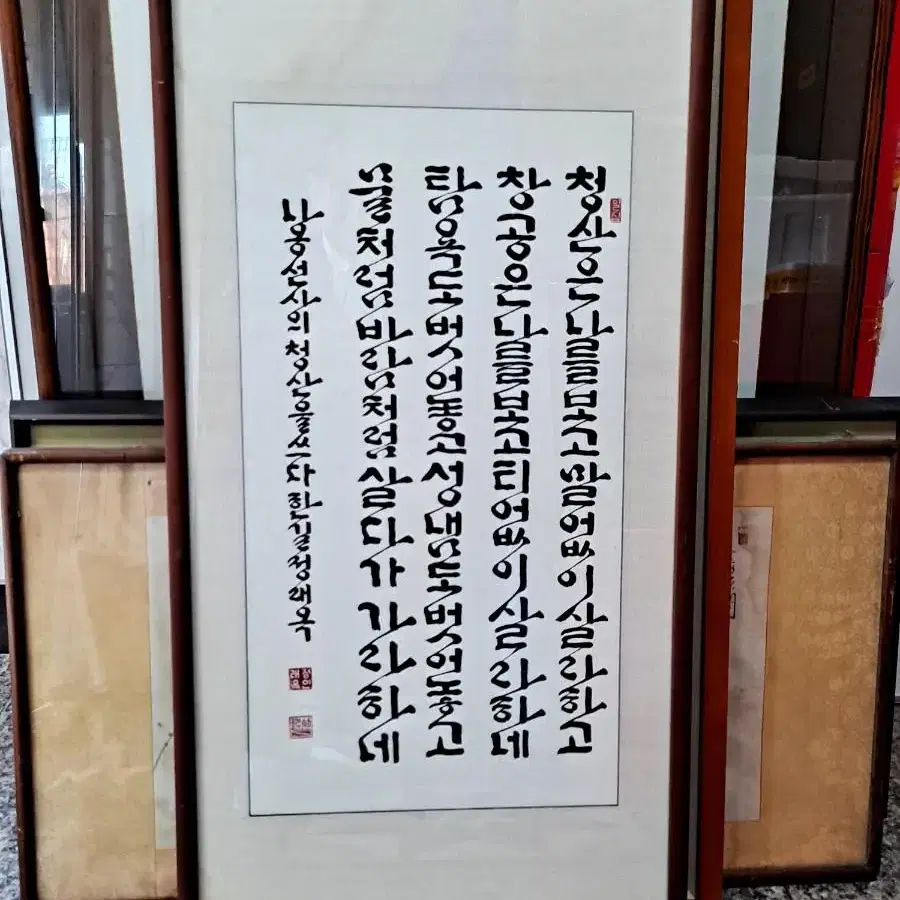 청산은 나를 보고 말 없이 살라 하고
창공은 나를 보고 티 없이 살라 하네
탐욕도 벗어 놓고 성냄도 벗어 놓고
물처럼 바람처럼 살다가 가라 하네
나옹선사의 청산을 쓰다 한길 정래옥